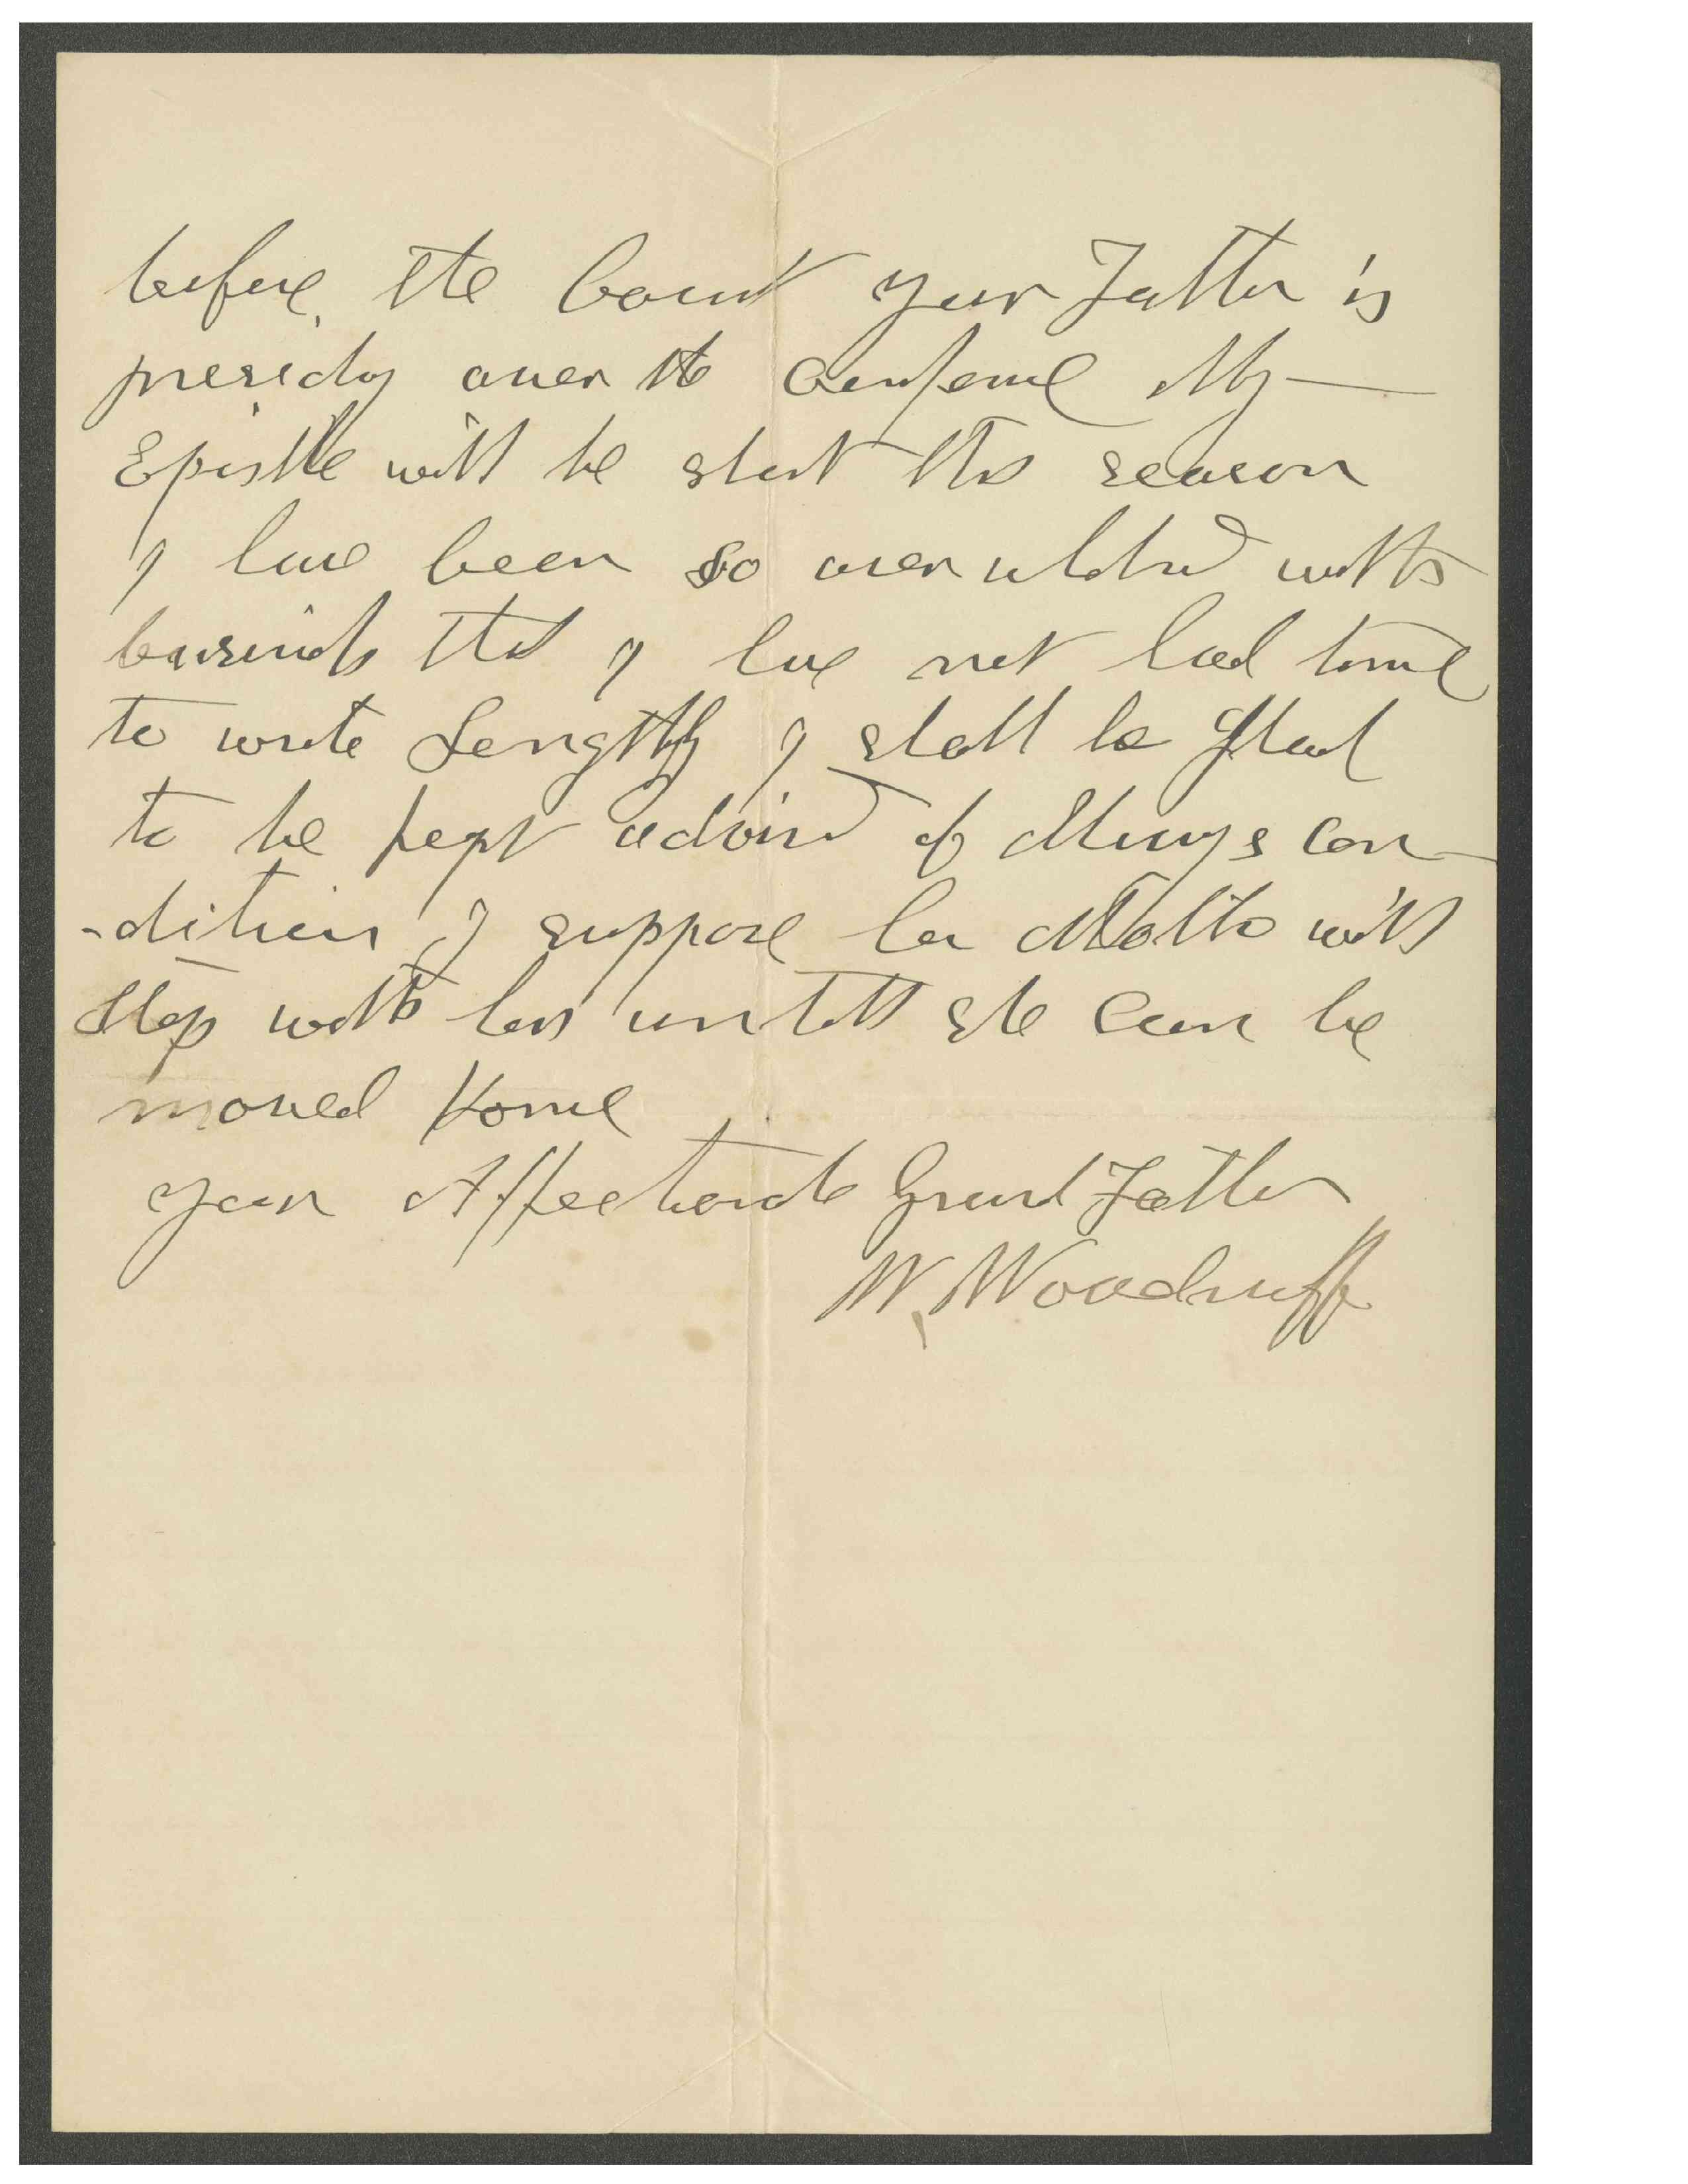 before the Court your Father is
presidg over the Conferne My
Epistle will be short this season
I have been so overwhelmd with
business that I have not had time
to write Lengthy I shall be glad
to be kept advised of Marys con
-dition I suppose her Mother will
stop with her untill she can be
moved Home
your Affectionate Grand Father
W. Woodruff